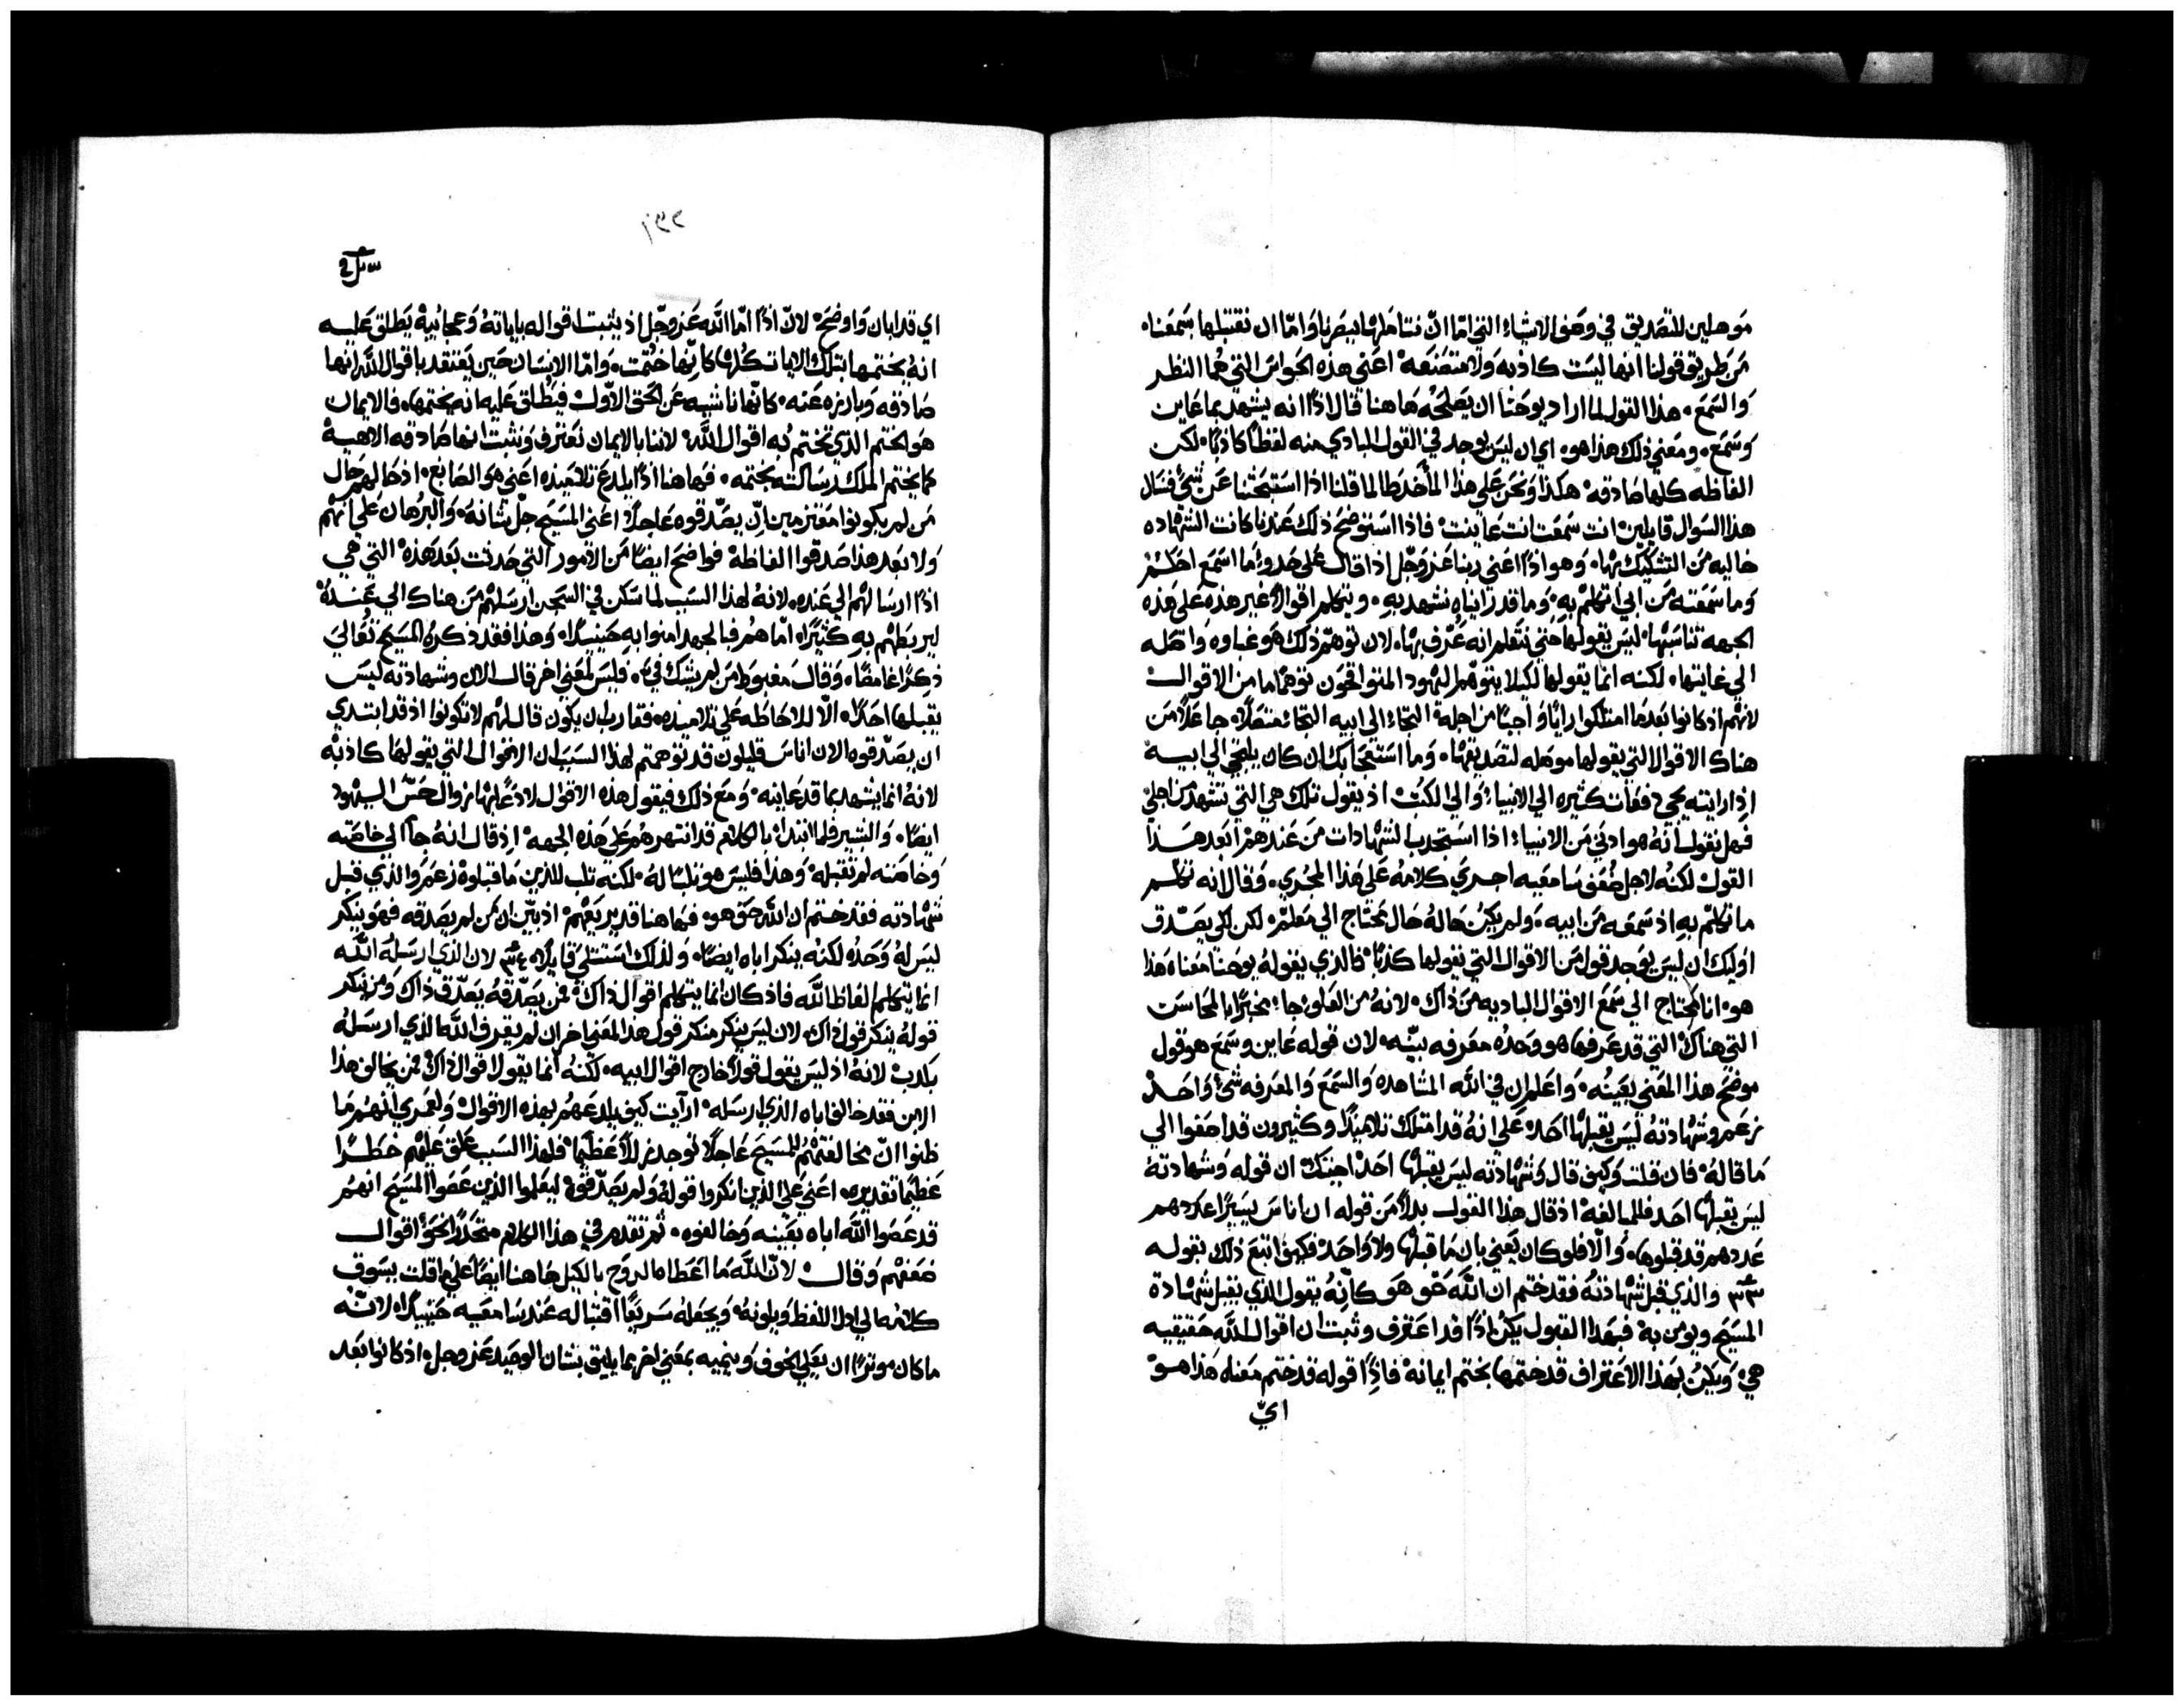 موهلين للتصديق في وصف الاشياء التي امّا انّ نتاملها ببصرنا وامّا ان نقتبلها بسمعنا
من طريق قولنا انها ليست كاذبه ولا متصنعه اعني هذه الحواس التي هما النظر
والسمع هذا القول لما اراد يوحنا ان يصلحه هاهنا قال اذًا انه يشهد بما عاين
وسمع ومعني ذلك هذا هو اي ان ليس يوجد في القول البادي منه لفظًا كاذبًا لكن
الفاظه كلها صادقه هكذا ونحن علي هذا الماخد طالما قلنا اذا استبحثنا عن شيٍ فنسال
هذا السوال قايلين انت سمعت انت عاينت فاذا استوضح ذلك عندنا كانت الشهاده
خاليه من التشكيك بها وهو اذًا اعني ربنا عز وجل اذا قال علي حدو ما اسمع احكم
وما سمعته من ابي اتكلم به وما قد رايناه نشهد به ويتكلم اقوالاً غير هذه علي هذه
الجهه تناسبها ليس يقولها حتي نتعلم انه عُرّف بها لان توهّم ذلك هو غباوه واصله
الي غايتها لكنه انما يقولها لكيلا يتوهّم اليهود المتواقحون توهّمًا ما من الاقوال
لانهم اذ كانوا بعد ما امتلكوا رايًا واجبًا من اجله التجاء الي ابيه التجاءً متصلاً جاعلاً من
هناك الاقوال التي يقولها موهله لتصديقها وما استعجابك ان كان يلتجي الي ابيه
اذ ارايته يجي دفعات كثيره الي الانبياء والي الكتب اذ يقول تلك هي التي تشهد من اجلي
فهل نقول انه هو ادني من الانبياء اذا استجدب الشهادات من عندهم ابعد هذا
القول لكنه لاجل ضعف سامعيه اجري كلامه علي هذا المجري وقال انه تكلم
ما تكلم به اذ سمعه من ابيه ولم يكن حاله حال محتاج الي معلم لكن لكي يصدق
اوليك ان ليس يوجد قول من الاقوال التي يقولها كذبًا فالذي يقوله يوحنا معناه هذا
هو انا محتاج الي سمع الاقوال الباديه من ذاك لانه من العلو جا مخبرًا بالمحاسن
التي هناك التي قد عرفها هو وحده معرفه بيّنه لان قوله عاين وسمع هو قول
موضح هذا المعني بعينه واعلم ان في الله المشاهده والسمع والمعرفه شيٌ واحد
زعم وشهادته ليس يقبلها احد علي انه قد امتلك تلاميذًا وكثيرون قد اصغوا الي
ما قاله فان قلت وكيف قال وشهادته ليس يقبلها احد اجبتك ان قوله وشهادته
ليس يقبلها احد فللمبالغه اذ قال هذا القول بدلاً من قوله ان اناس يسيرًا عددهم
عددهم قد قبلوها والّا فلو كان يعني بان ما قبلها ولا واحد فكيف اتبع ذلك بقوله
٣٣ والذي قبل شهادته فقد ختم ان الله حق هو كانّه يقول الذي يقبل شهادة
المسيح ويومن به فبهذا القبول يكن اذًا قد اعترف وثبت ان اقوال الله حقيقيه
هي ويكن بهذا الاعتراف قد ختمها بختم ايمانه فاذًا قوله قد ختم معناه هذا هو
ايّ
١٣٢
اي قد ابان واوضح لانّ اذًا امّا الله عز وجّل اذ يثبت اقواله باياته وعجائبه يطلق عليه
انه يختمها بتلك الايات كلها كانّها ختمت وامّا الانسان حين يعتقد باقوال الله انها
صادقه وبارزه عنه كانّها ناشبه عن الحق الاول فيطلق عليه انه يختمها فالايمان
هو الختم الذي تختم به اقوال الله لاننا بالايمان نعترف ونثبت انها صادقه الاهية
كما يختم الملك رسالته بختمه فهاهنا اذًا يلدع تلاميذه اعني هو الصابغ اذ حالهم حال
من لم يكونوا معتزمين ان يصدقوه عاجلاً اعني المسيح جل شانه والبرهان علي انهم
ولا بعد هذا صدقوا الفاظه فواضح ايضًا من الامور التي حدثت بعد هذه التي هي
اذًا ارسالهم الي عنده لانه لهذا السبب لما سكن في السجن ارسلهم من هناك الي عنده
ليربطهم به كثيرًا امّا هم فبالجهد امنوا به حينيذًا وهذا فقد ذكره المسيح تعالي
ذكرًا غامضًا وقال مغبوط من لم يشك فيّ فليس لمعني اخر قال الان وشهادته ليس
يقبلها احدًا الّا للاحاطه علي تلاميذه فقارب ان يكون قال لهم لا تكونوا اذ قد ابتدي
ان يصدقوه الان اناس قليلون قد توهمتم لهذا السبب ان الاقوال التي يقولها كاذبه
لانه انما يشهد بما قد عاينه ومع ذلك فيقول هذه الاقوال لادعًا بها زوال حسّ اليهود
ايضًا والبشير فلما ابتداء بالكلام قد انتهرهم علي هذه الجهه اذ قال انه جآ الي خاصّته
وخاصته لم تقبله وهذا فليس هو تلبًا له لكنه تلب للذين ما قبلوه زعم والذي قبل
شهادته فقد ختم ان الله حق هو فهاهنا قد يربعهم اذ بيّن ان من لم يصدقه فهو ينكر
ليس له وحده لكنه ينكر اباه ايضًا ولذلك استتلي قايلاً ٣٤ لان الذي ارسله الله
انما يتكلم الفاظ الله فاذ كان انما يتكلم اقوال ذاك فمن يصدقه يصدق ذاك ومن ينكر
قوله ينكر قول ذاك لان ليس ينكر منكر قول هذا لمعني اخر ان لم يقرف الله الذي ارسله
بكدب لانه اذ ليس يقول قولاً خارج اقوال ابيه لكنّه انما يقول اقوال ذاك فمن يخالف هذا
الابن فقد خالف اباه الذي ارسله ارآيت كيف يلدعهم بهذه الاقوال ولعمري انهم ما
ظنوا انّ مخالفتهم للمسيح عاجلاً توجد زللاً عظيمًا فلهذا السبب علق عليهم خطرًا
عظيمًا تقديره اعني علي الذين انكروا قوله ولم يصدقوه ليعلموا الذين عصوا المسيح انهم
قد عصوا الله اباه بعينه وخالفوه ثم تقدم في هذا الكلام متحدرًا نحو اقوال
ضعفهم وقال لانّ الله ما اعطاه الروح بالكيل هاهنا ايضًا علي ما قلت يسوق
كلامه الي ادل اللفظ ويلونه ويجعله سريعًا اقتباله عند سامعيه حينيذًا لانّه
ما كان موثرًا ان يعلي الخوف وينميه بمعني اخر مما يليق بشان الوحيد عز وجل اذ كانوا بعد